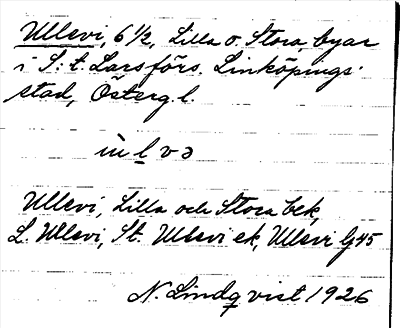 Ullevi, 6 1/2, Lilla o. Stora byar
i S:t Lars förs. Linköpings
stad, Östergl.
ùlvə
Ullevi, Lilla och Stora bek,
L. Ullevi, St. Ullevi ek, Ullevi G45
N. Lindqvist 1926